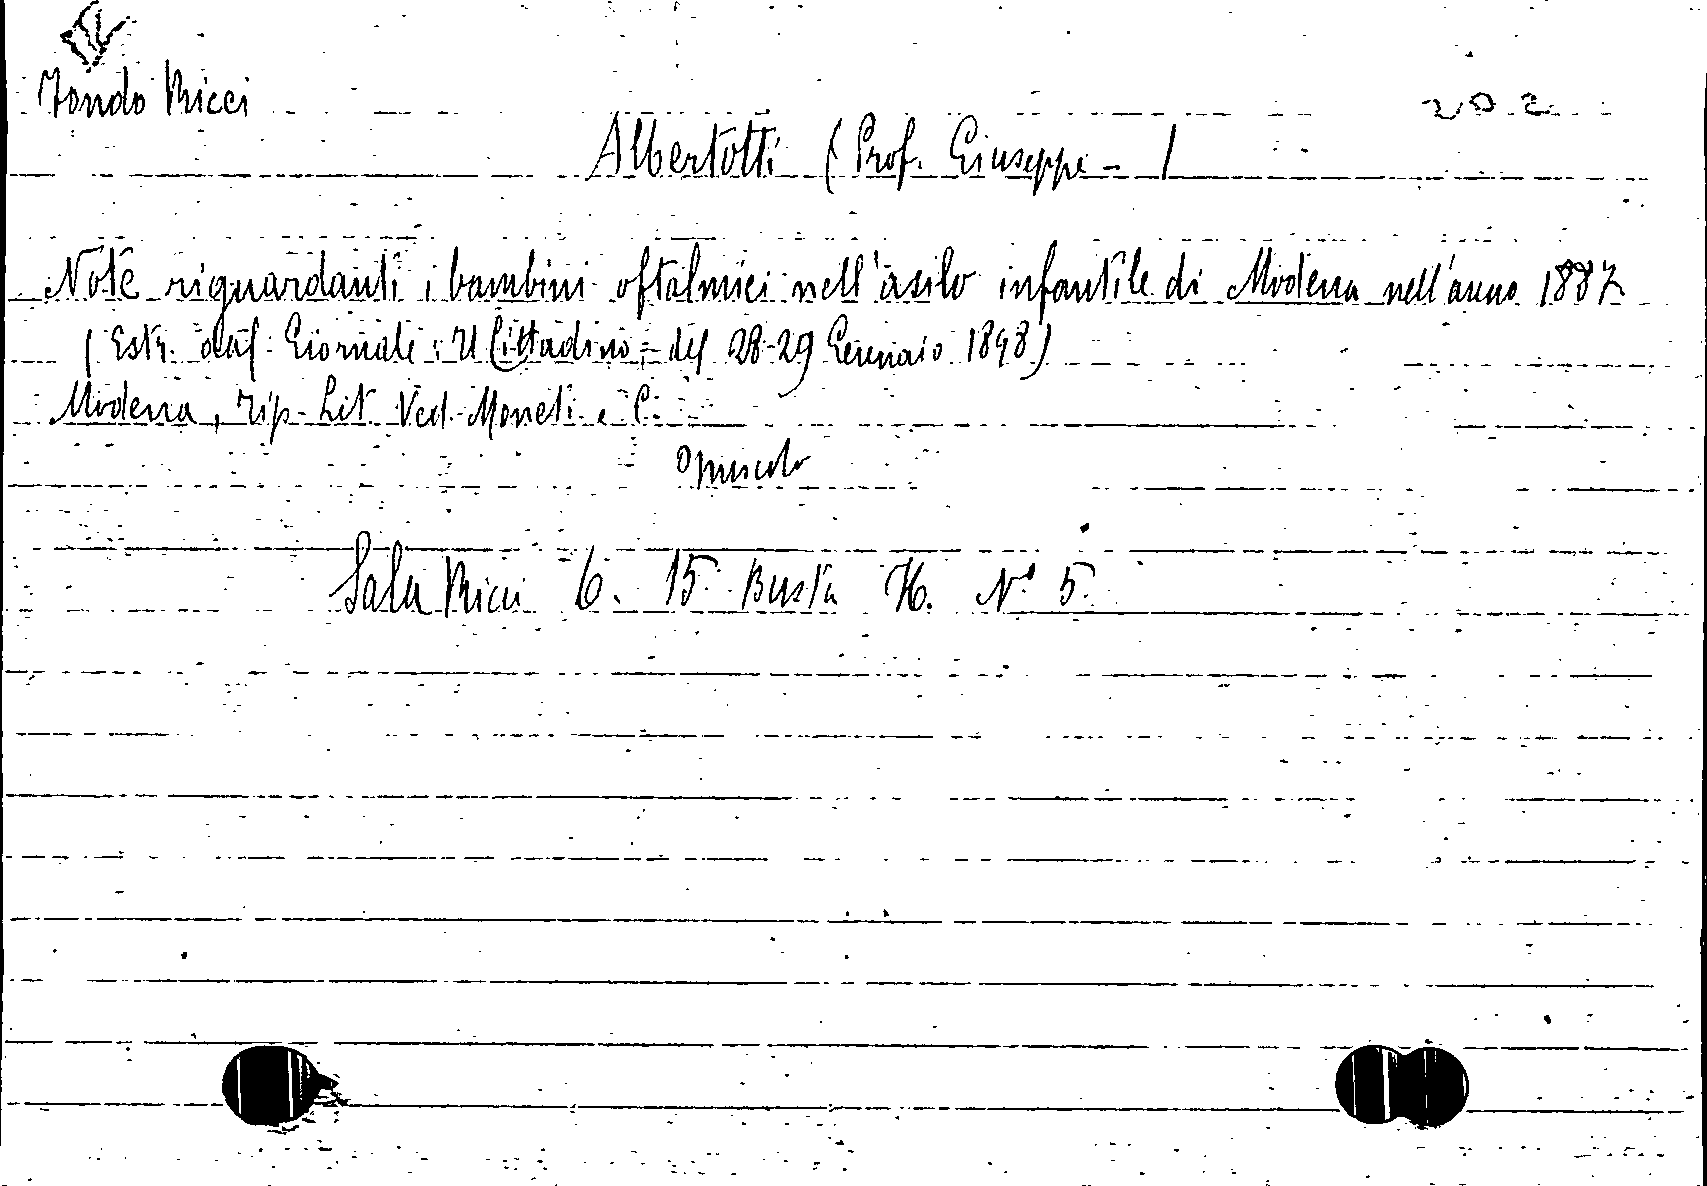 Fondo Ricci
202
Albertotti (Prof. Giuseppe - )
Note riguardanti i bambini oftalmici nell'asilo infantile di Modena nell'anno 1887
(Estr. dal Giornale: Il Cittadino, del 28-29 Gennaio 1898)
Modena, Tip-Lit. Ved. Moneti e C.
Opuscolo
Sala Ricci 6. 15. Busta H. N° 5.